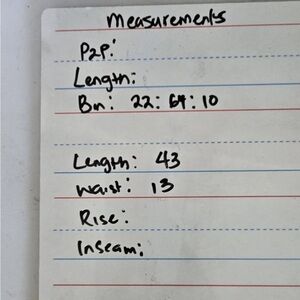 Measurements
P2P:
Length:
Bm: 22:64:10
Length: 43
Waist: 13
Rise:
Inseam: